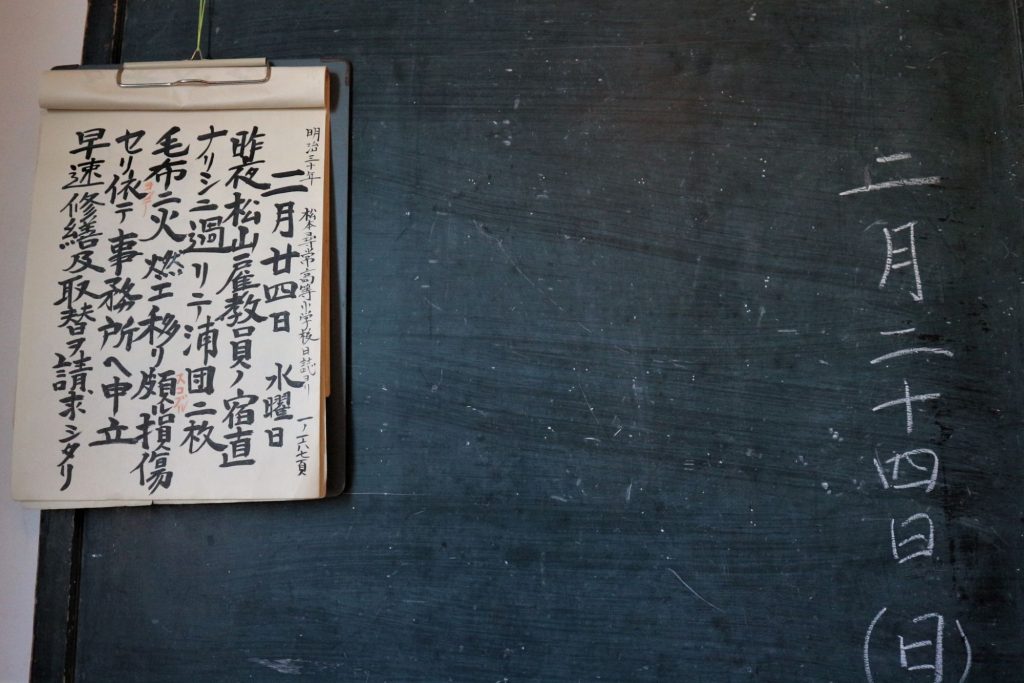 二月二十四日(日)
明治三十年 松本尋常高等小学校日誌ヨリ
二月廿四日 水曜日
昨夜松山雇教員ノ宿直
ナリシニ過リテ浦団二枚
毛布ニ火燃エ移リ頗ル損傷
スコブル
セリ依テ事務所ヘ申立
ヨッテ
早速修繕及取替ヲ請求シタリ